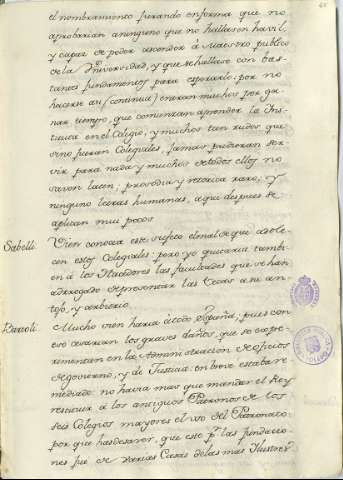 el nombramiento jurando en forma que no
aprobarian a ninguno que no hallasen havil,
y capaz de poder ascender a Maestro publico
de la Universidad, y que se hallase con bas-
tantes fundamentos para esperarlo: por no
hacerse asi (continua) entran muchos por ga-
nar tiempo, que comienzan aprender la Ins-
tituta en el Colegio, y muchos tan rudos que
si no fueran Colegiales, jamas pudieran ser-
vir para nada y muchos de todos ellos no
saven latin, prosodia y retorica raro, y
ninguno letras humanas, a que despues se
aplican mui pocos
Sabelli
Bien conoce este sujeto el mal de que adole-
cen estos Colegiales: pero yo quitaria tambi-
en á los Hacedores las facultades que se han
adrogado de presentar las Becas a su an-
tojo, y arbitrio.
Bartoli
Mucho bien haria á toda España; pues con
eso cesarian los graves daños, que se espe-
rimentan en la Administracion de oficios
de govierno, y de Justicia: en breve estaba re-
mediado no havia mas que mandar el Rey
restituir á los antiguos Patronos de los
seis Colegios mayores el uso del Patronato
por que has de saver, que este pr. las fundacio-
nes fue de varias Casas de las mas Ilustres